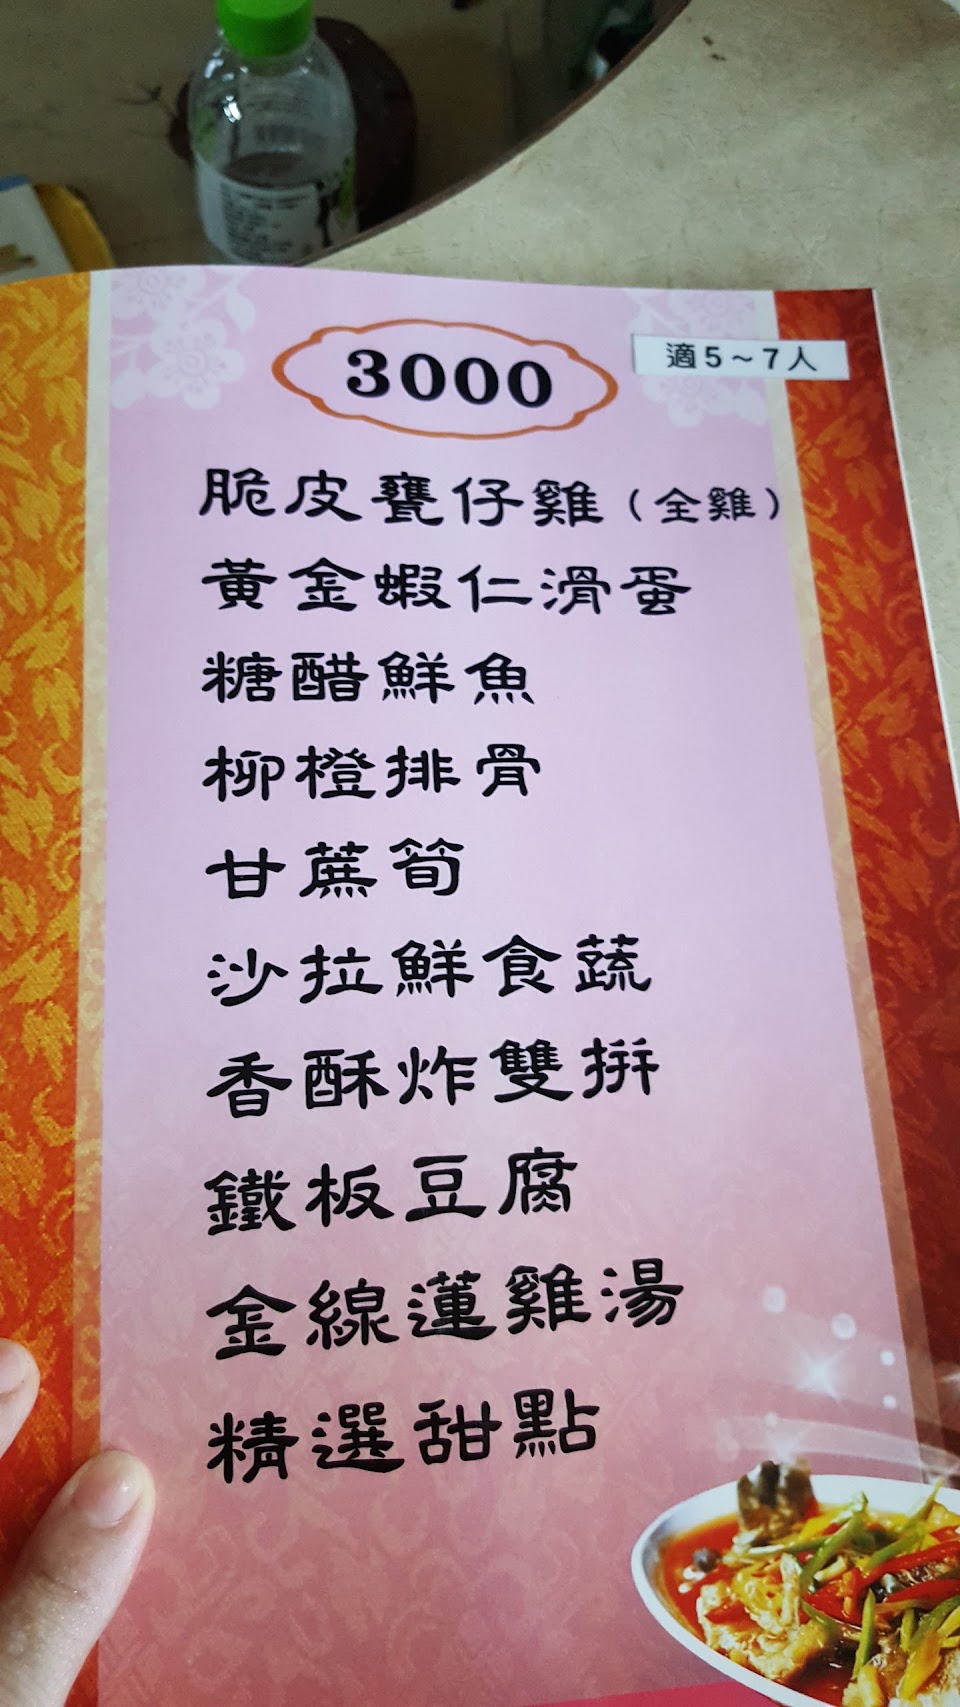 3000
適5～7人
脆皮甕仔雞（全雞）
黃金蝦仁滑蛋
糖醋鮮魚
柳橙排骨
甘蔗筍
沙拉鮮食蔬
香酥炸雙拼
鐵板豆腐
金線蓮雞湯
精選甜點